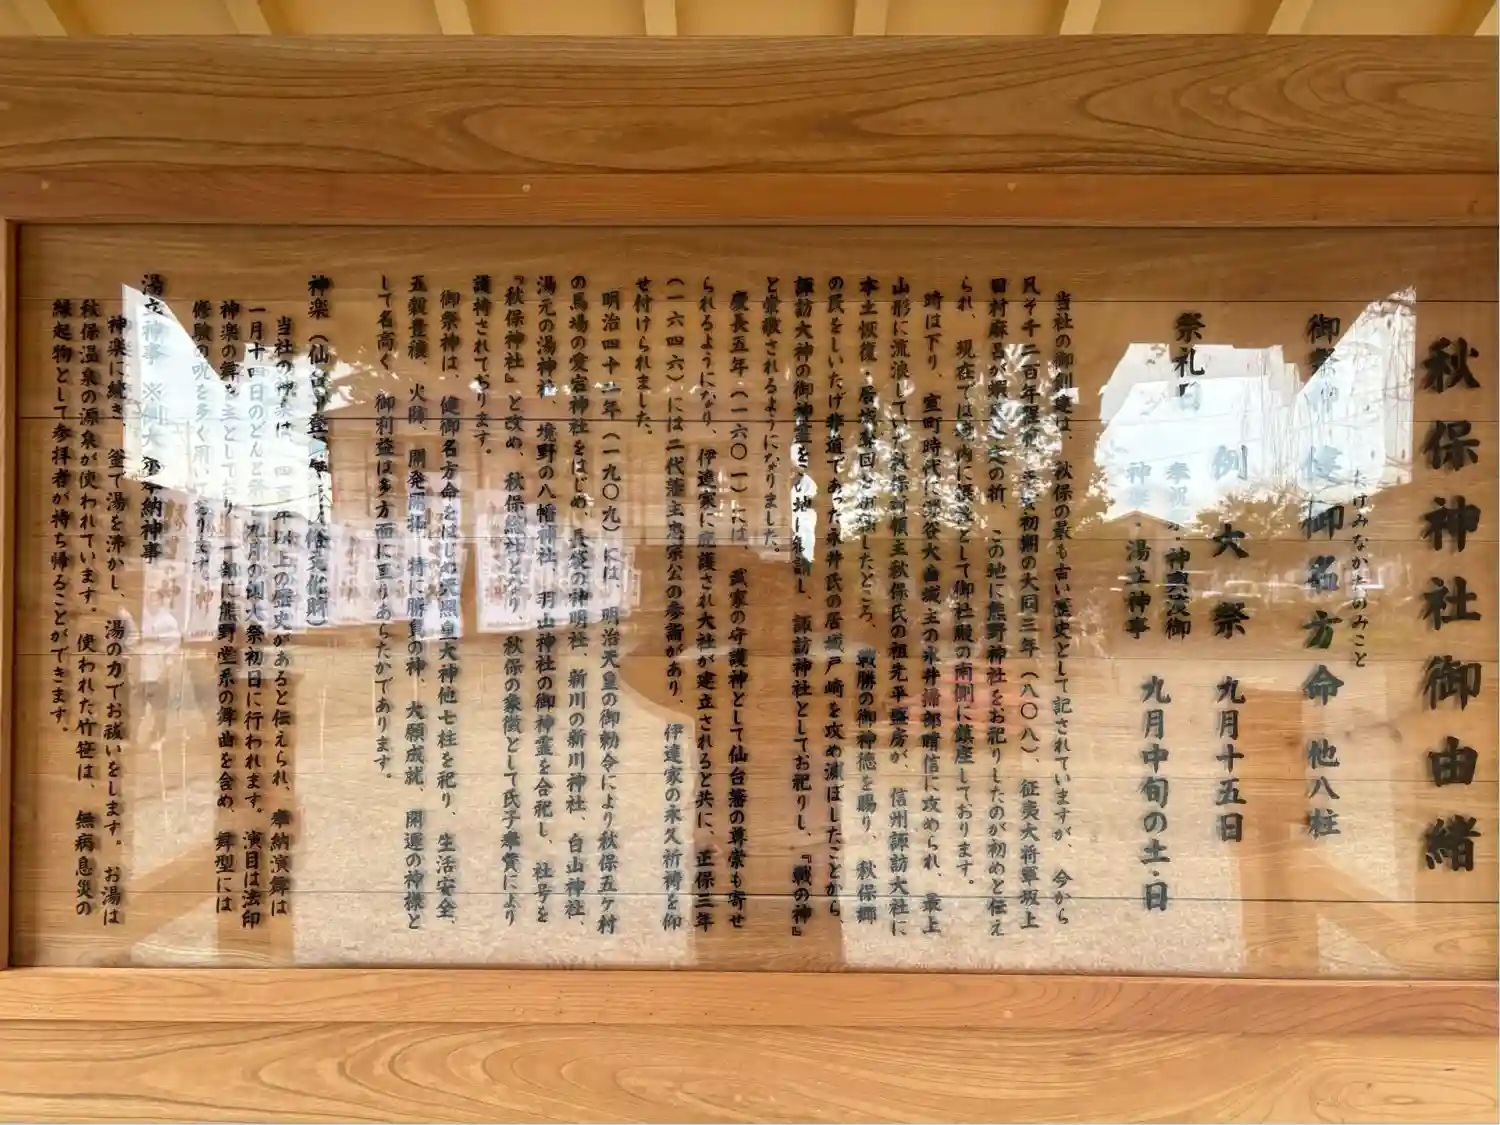 秋保神社御由緒
たけみなかたのみこと
御祭神 健御名方命 他八柱
祭礼日
例大祭 九月十五日
神輿渡御
神楽・湯立神事 九月中旬の土・日
当社の御創建は、秋保の最も古い歴史として記されていますが、今から
凡そ千二百年程前、平安初期の大同三年(八〇八)、征夷大将軍坂上
田村麻呂が蝦夷 の折、この地に熊野神社をお祀りしたのが初めと伝え
られ、現在では境内に 社として御社殿の南側に鎮座しております。
時は下り、室町時代に 谷大曲城主の永井掃部晴信に攻められ、最上
山形に流浪していた秋保領主秋保氏の祖先平盛房が、信州諏訪大社に
本土恢復・居城奪回を祈願したところ、戦勝の御神徳を賜り、秋保郷
の民をしいたげ非道であった永井氏の居城戸崎を攻め滅ぼしたことから、
諏訪大神の御神霊をこの地に勧請し、諏訪神社としてお祀りし、『戦の神』
と崇敬されるようになりました。
慶長五年(一六〇一)には、武家の守護神として仙台藩の尊崇も寄せ
られるようになり、伊達家に庇護され大社が建立されると共に、正保三年
(一六四六)には二代藩主忠宗公の参詣があり、伊達家の永久祈祷を仰
せ付けられました。
明治四十二年(一九〇九)には、明治天皇の御勅令により秋保五ケ村
の馬場の愛宕神社をはじめ、長袋の神明社、新川の新川神社、白山神社、
湯元の湯神社、境野の八幡神社、羽山神社の御神霊を合祀し、社号を
『秋保神社』と改め、秋保総社となり、秋保の象徴として氏子奉賛により
護持されております。
御祭神は、健御名方命をはじめ天照皇大神他七柱を祀り、生活安全、
五穀豊穣、火防、開発 、特に勝負の神、大願成就、開運の神様と
して名高く、御利益は多方面に亘りあらたかであります。
神楽(仙台市登録無形民俗文化財)
当社の神楽は、四百年以上の歴史があると伝えられ、奉納演舞は
一月十四日のどんと祭、九月の例大祭初日に行われます。演目は法印
神楽の舞を主としており、一部に熊野堂系の舞曲を含め、舞型には
修験の呪を多く用いております。
湯立神事 ※例大祭奉納神事
神楽に続き、釜で湯を沸かし、湯の力でお祓いをします。お湯は
秋保温泉の源泉が使われています。使われた竹笹は、無病息災の
縁起物として参拝者が持ち帰ることができます。